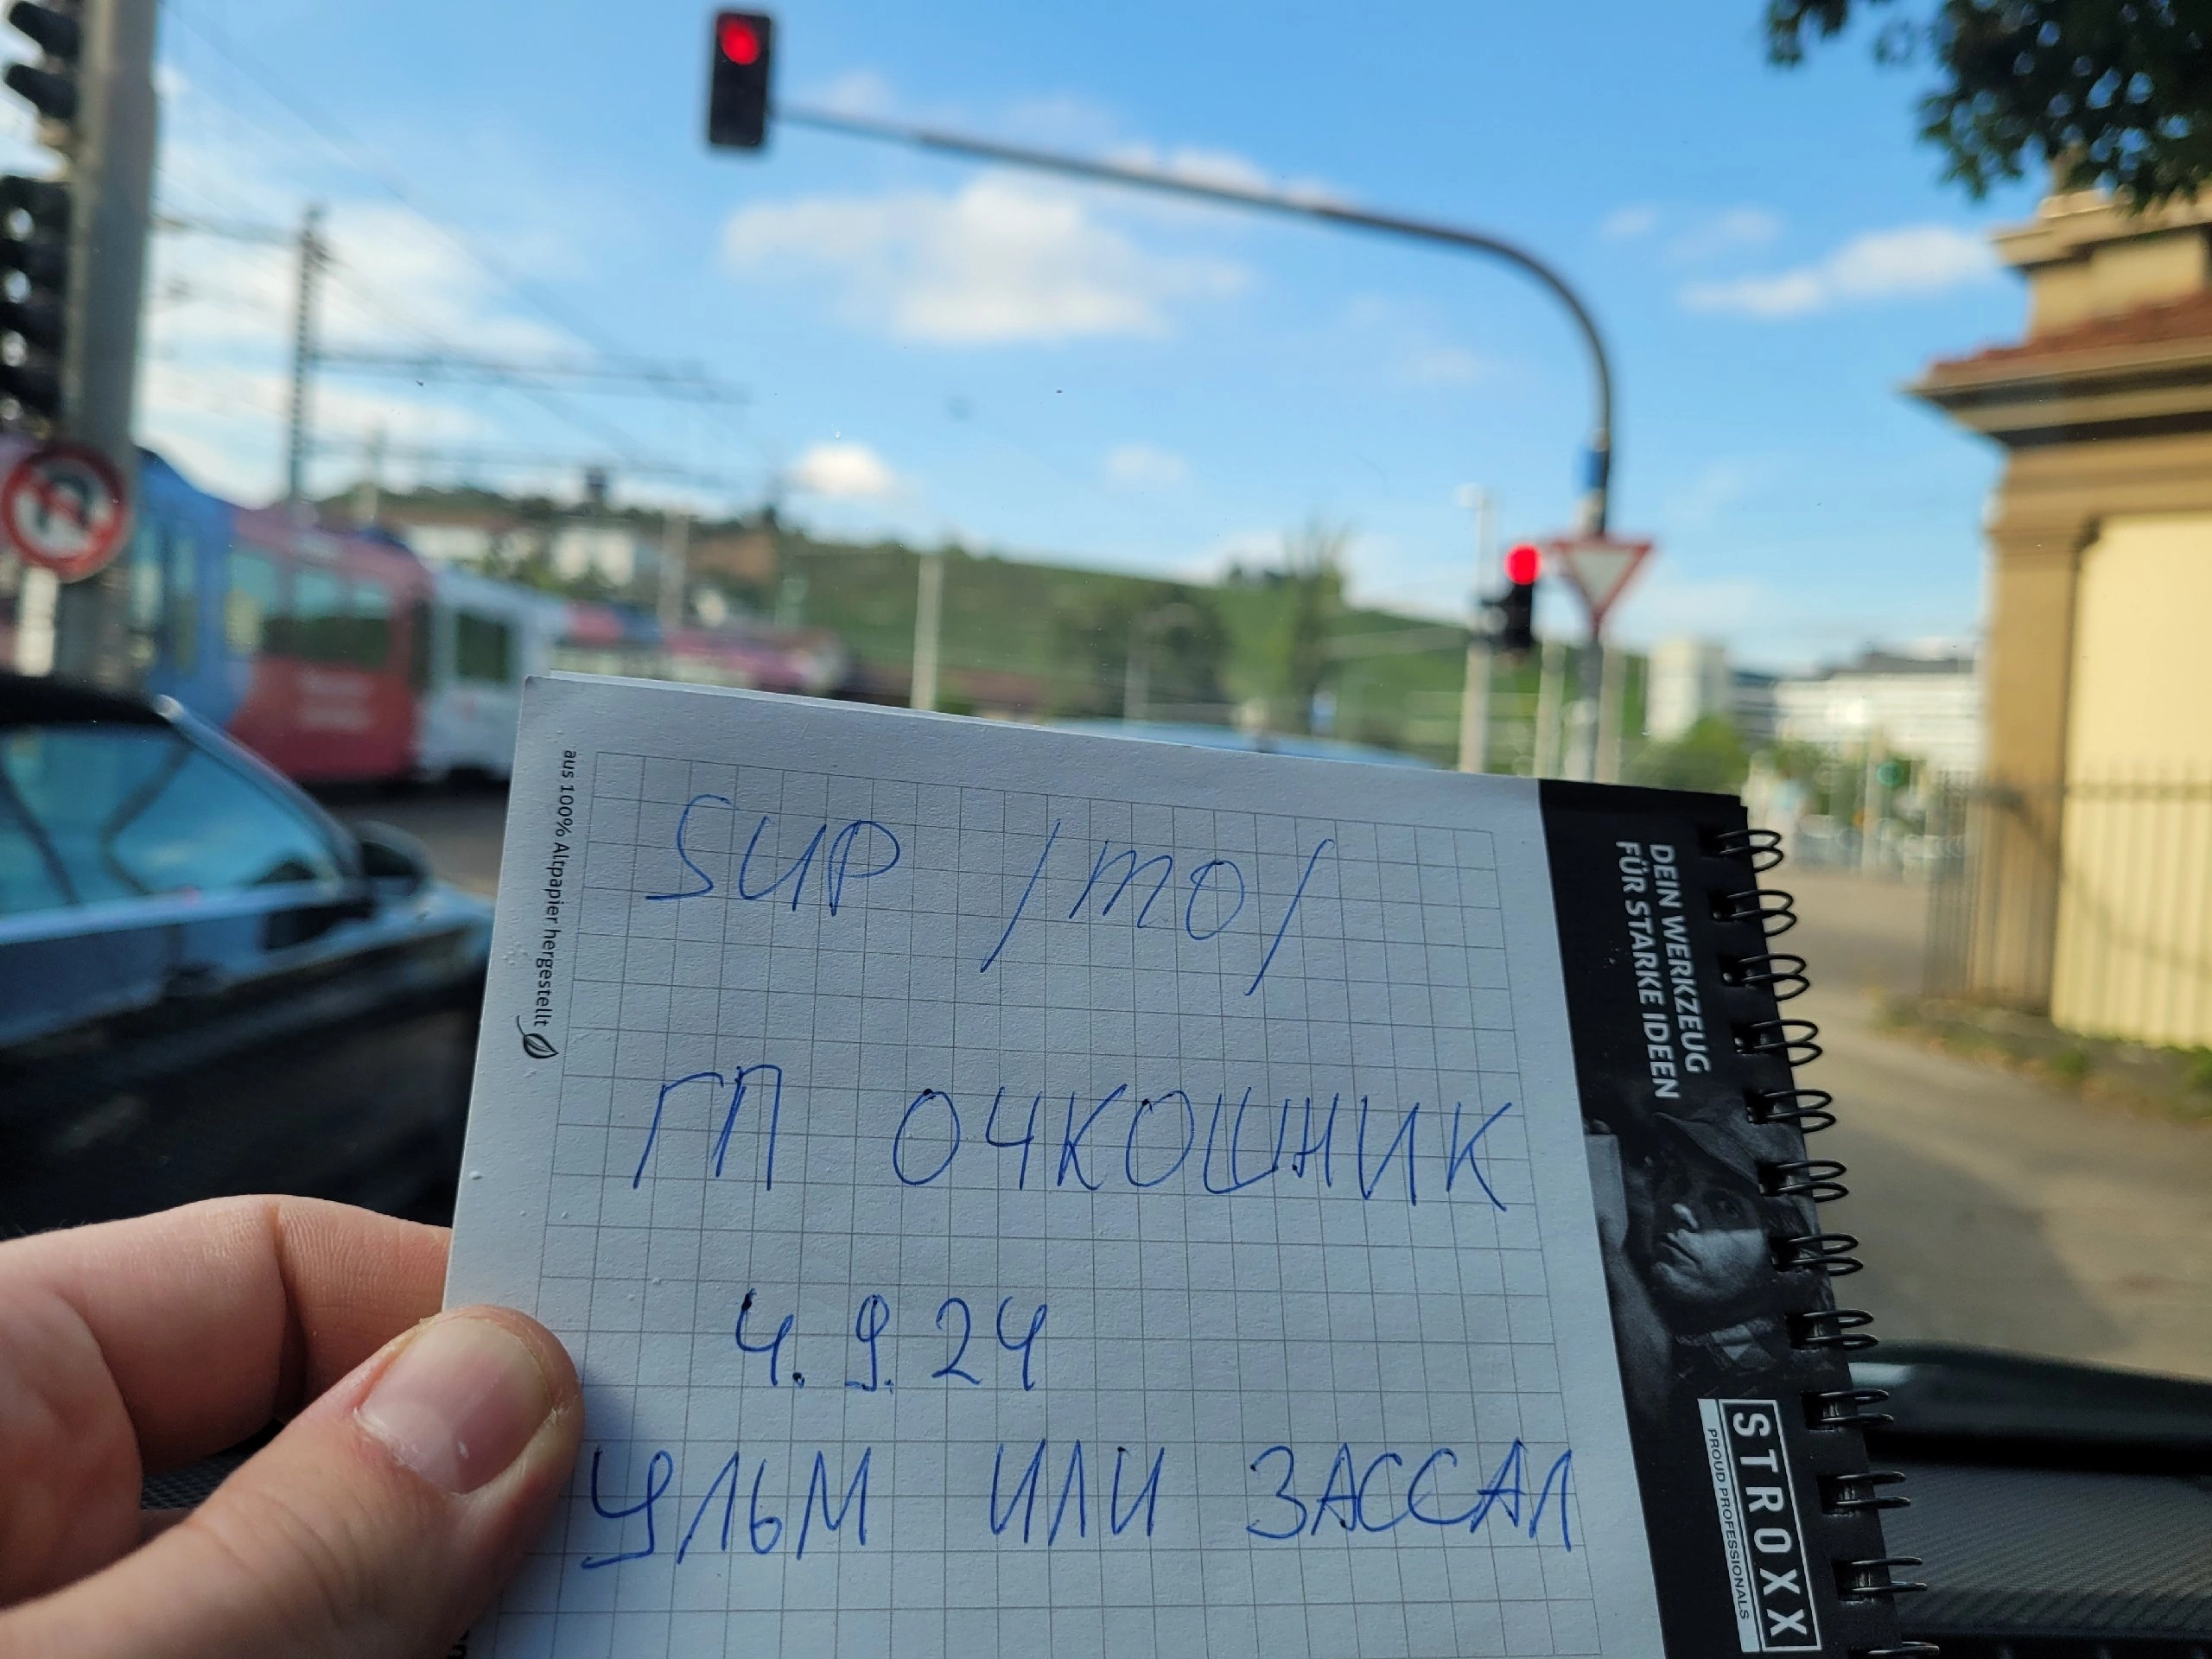 SUP /mo/
ГП ОЧКОШНИК
4.9.24
УЛЬМ ИЛИ ЗАССАЛ
aus 100% Altpapier hergestellt
DEIN WERKZEUG
FÜR STARKE IDEEN
STROXX
PROUD PROFESSIONALS